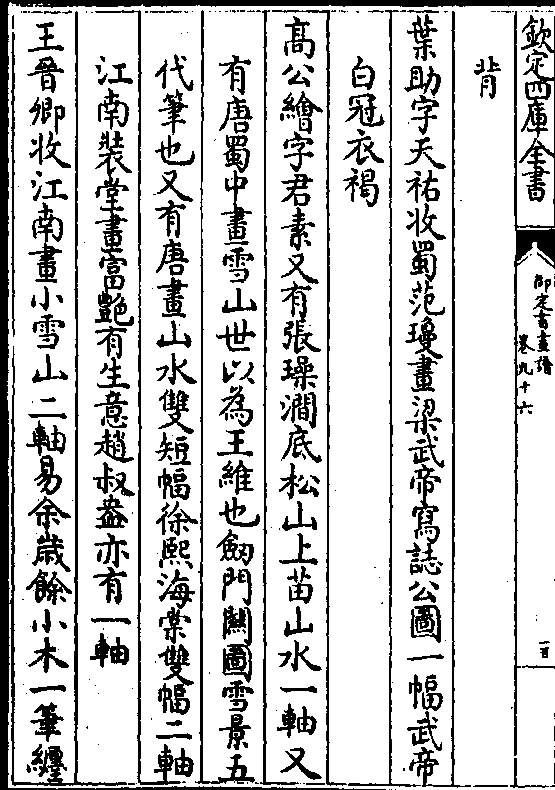 欽定四庫全書
御定書畫譜
卷九十六
一百
背
葉助字天祐收蜀范瓊畫梁武帝寫誌公圖一幅武帝
白冠衣褐
髙公繪字君素又有張璪澗底松山上苗山水一軸又
有唐蜀中畫雪山世以為王維也劔門關圖雪景五
代筆也又有唐畫山水雙短幅徐熙海棠雙幅二軸
江南裝堂畫富艷有生意趙叔盎亦有一軸
王晉卿收江南畫小雪山二軸易余歲餘小木一筆纏